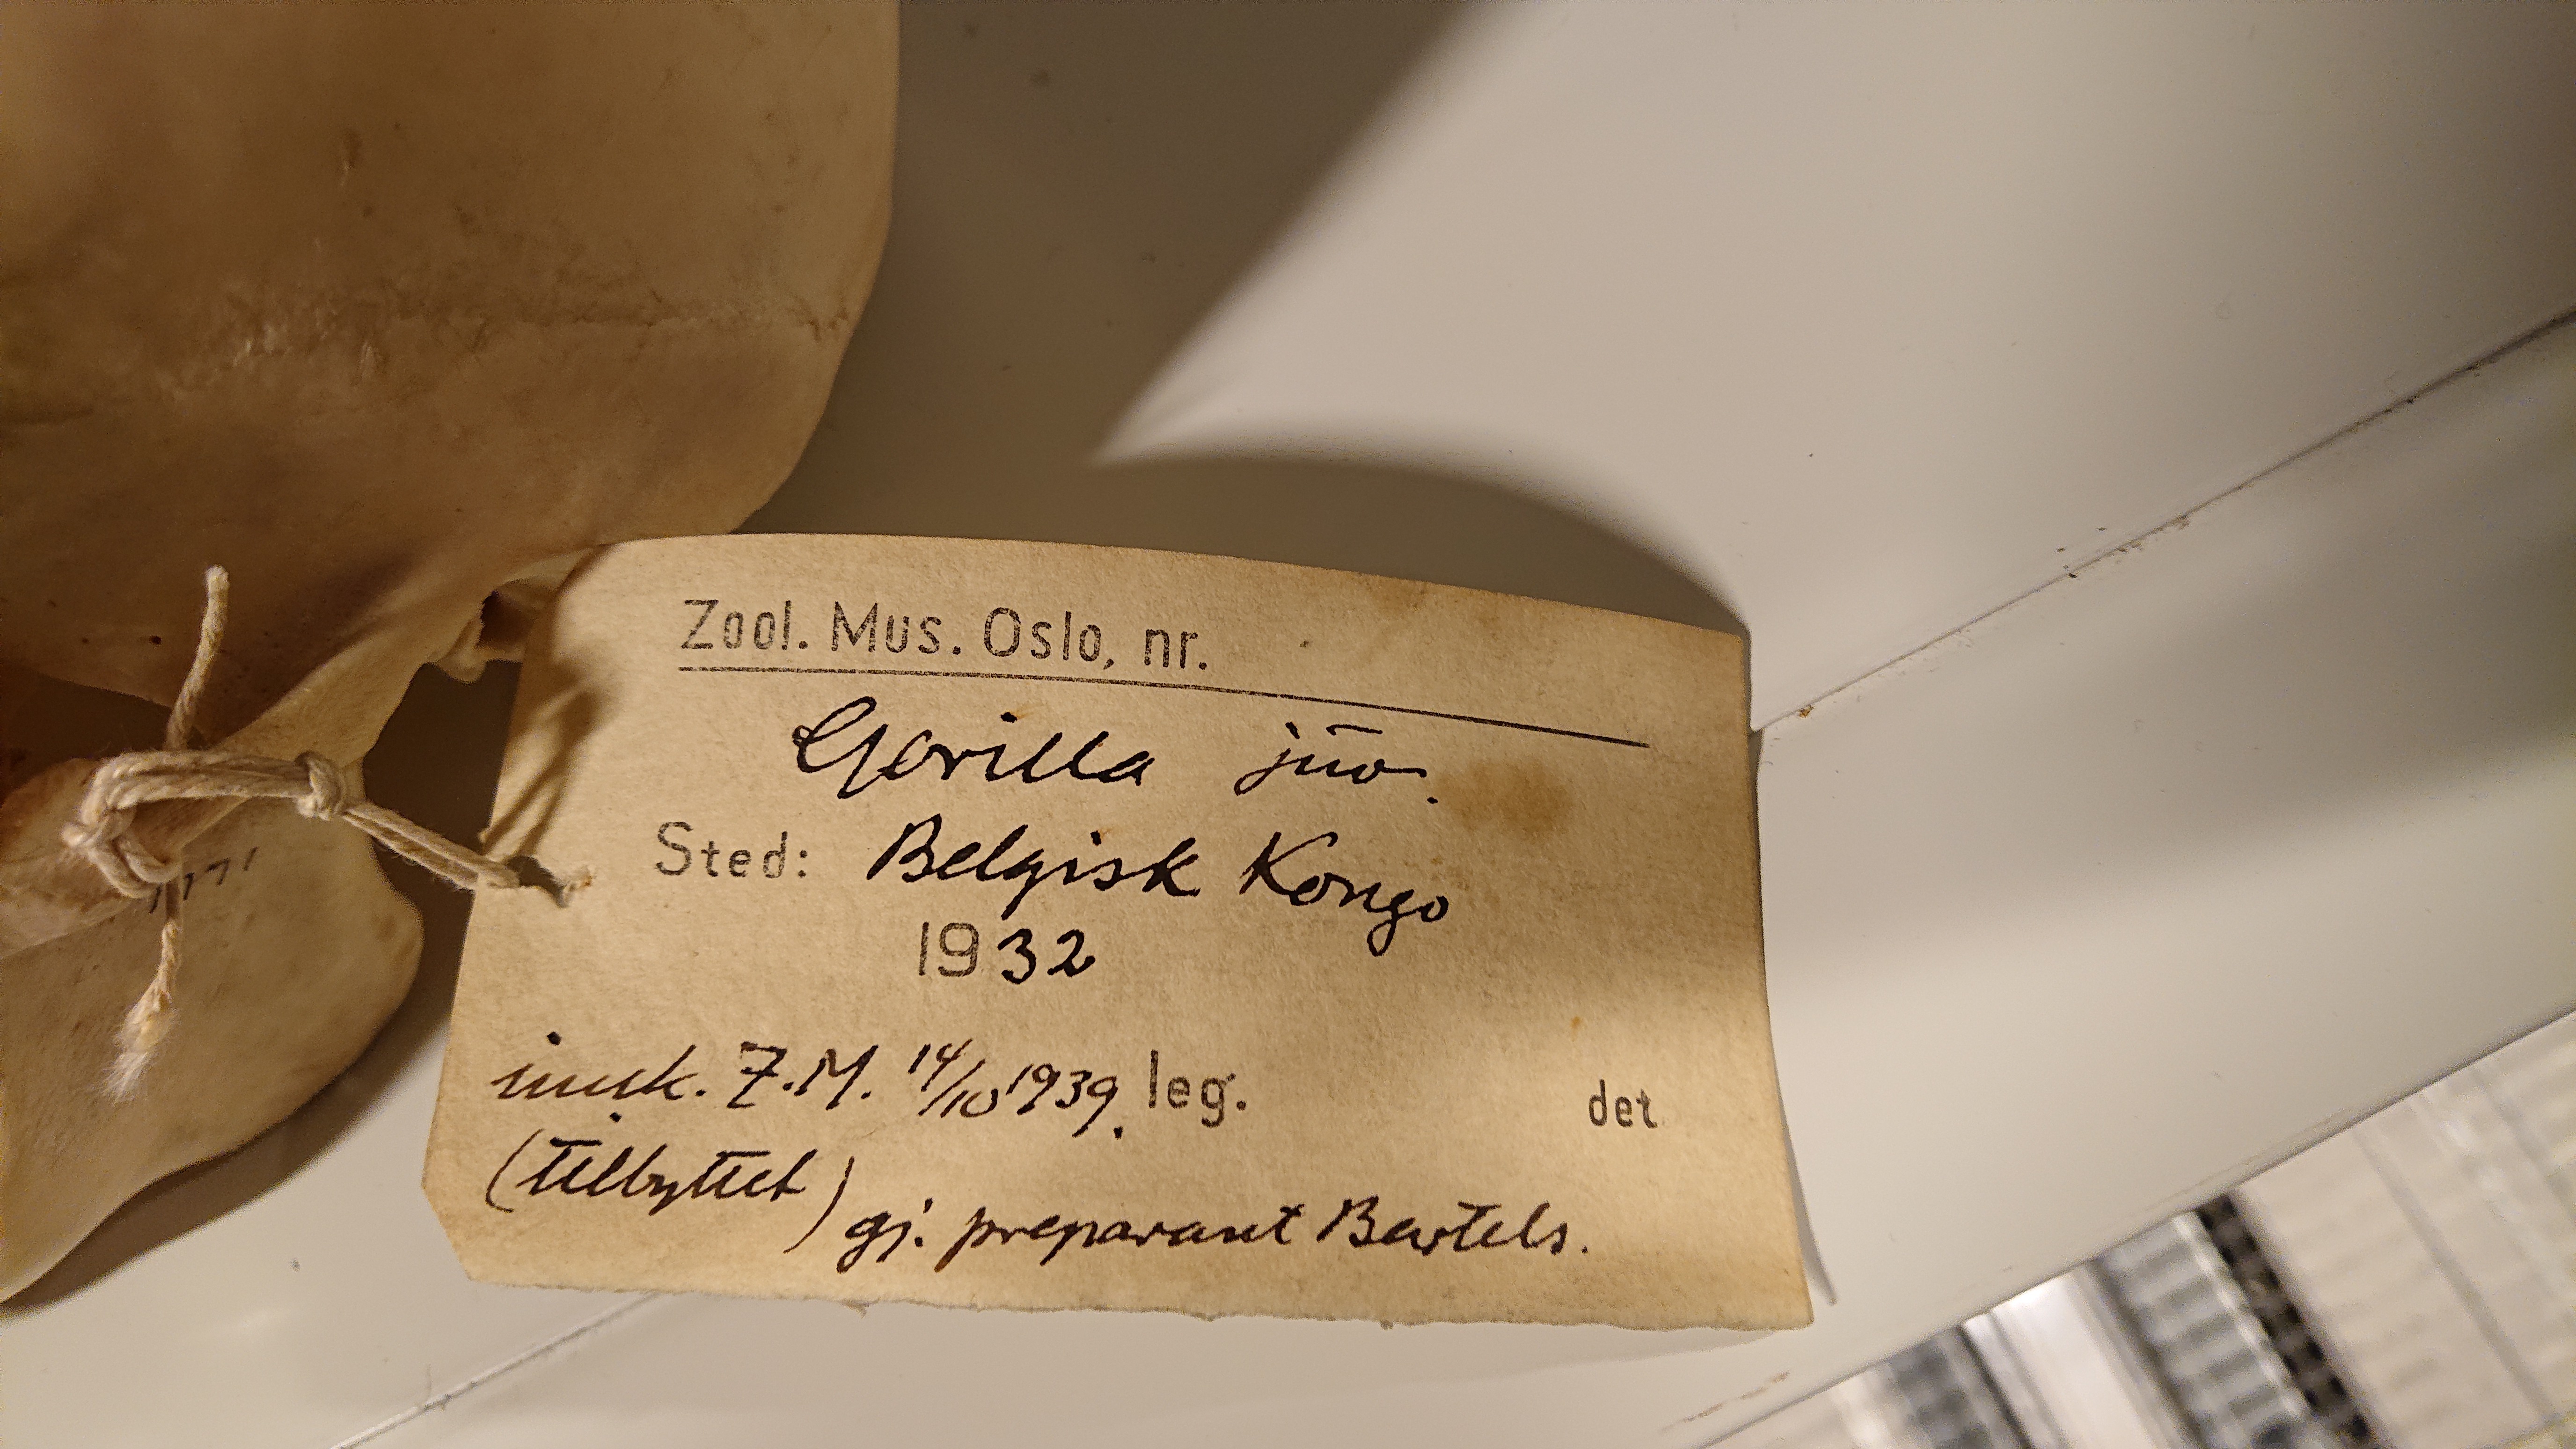 Zool. Mus. Oslo, nr.
Gorilla juv.
Sted: Belgisk Kongo
1932
innk. Z.M. 14/10 1939. leg. det
(tilbyttet)
gj. preparant Bertels.